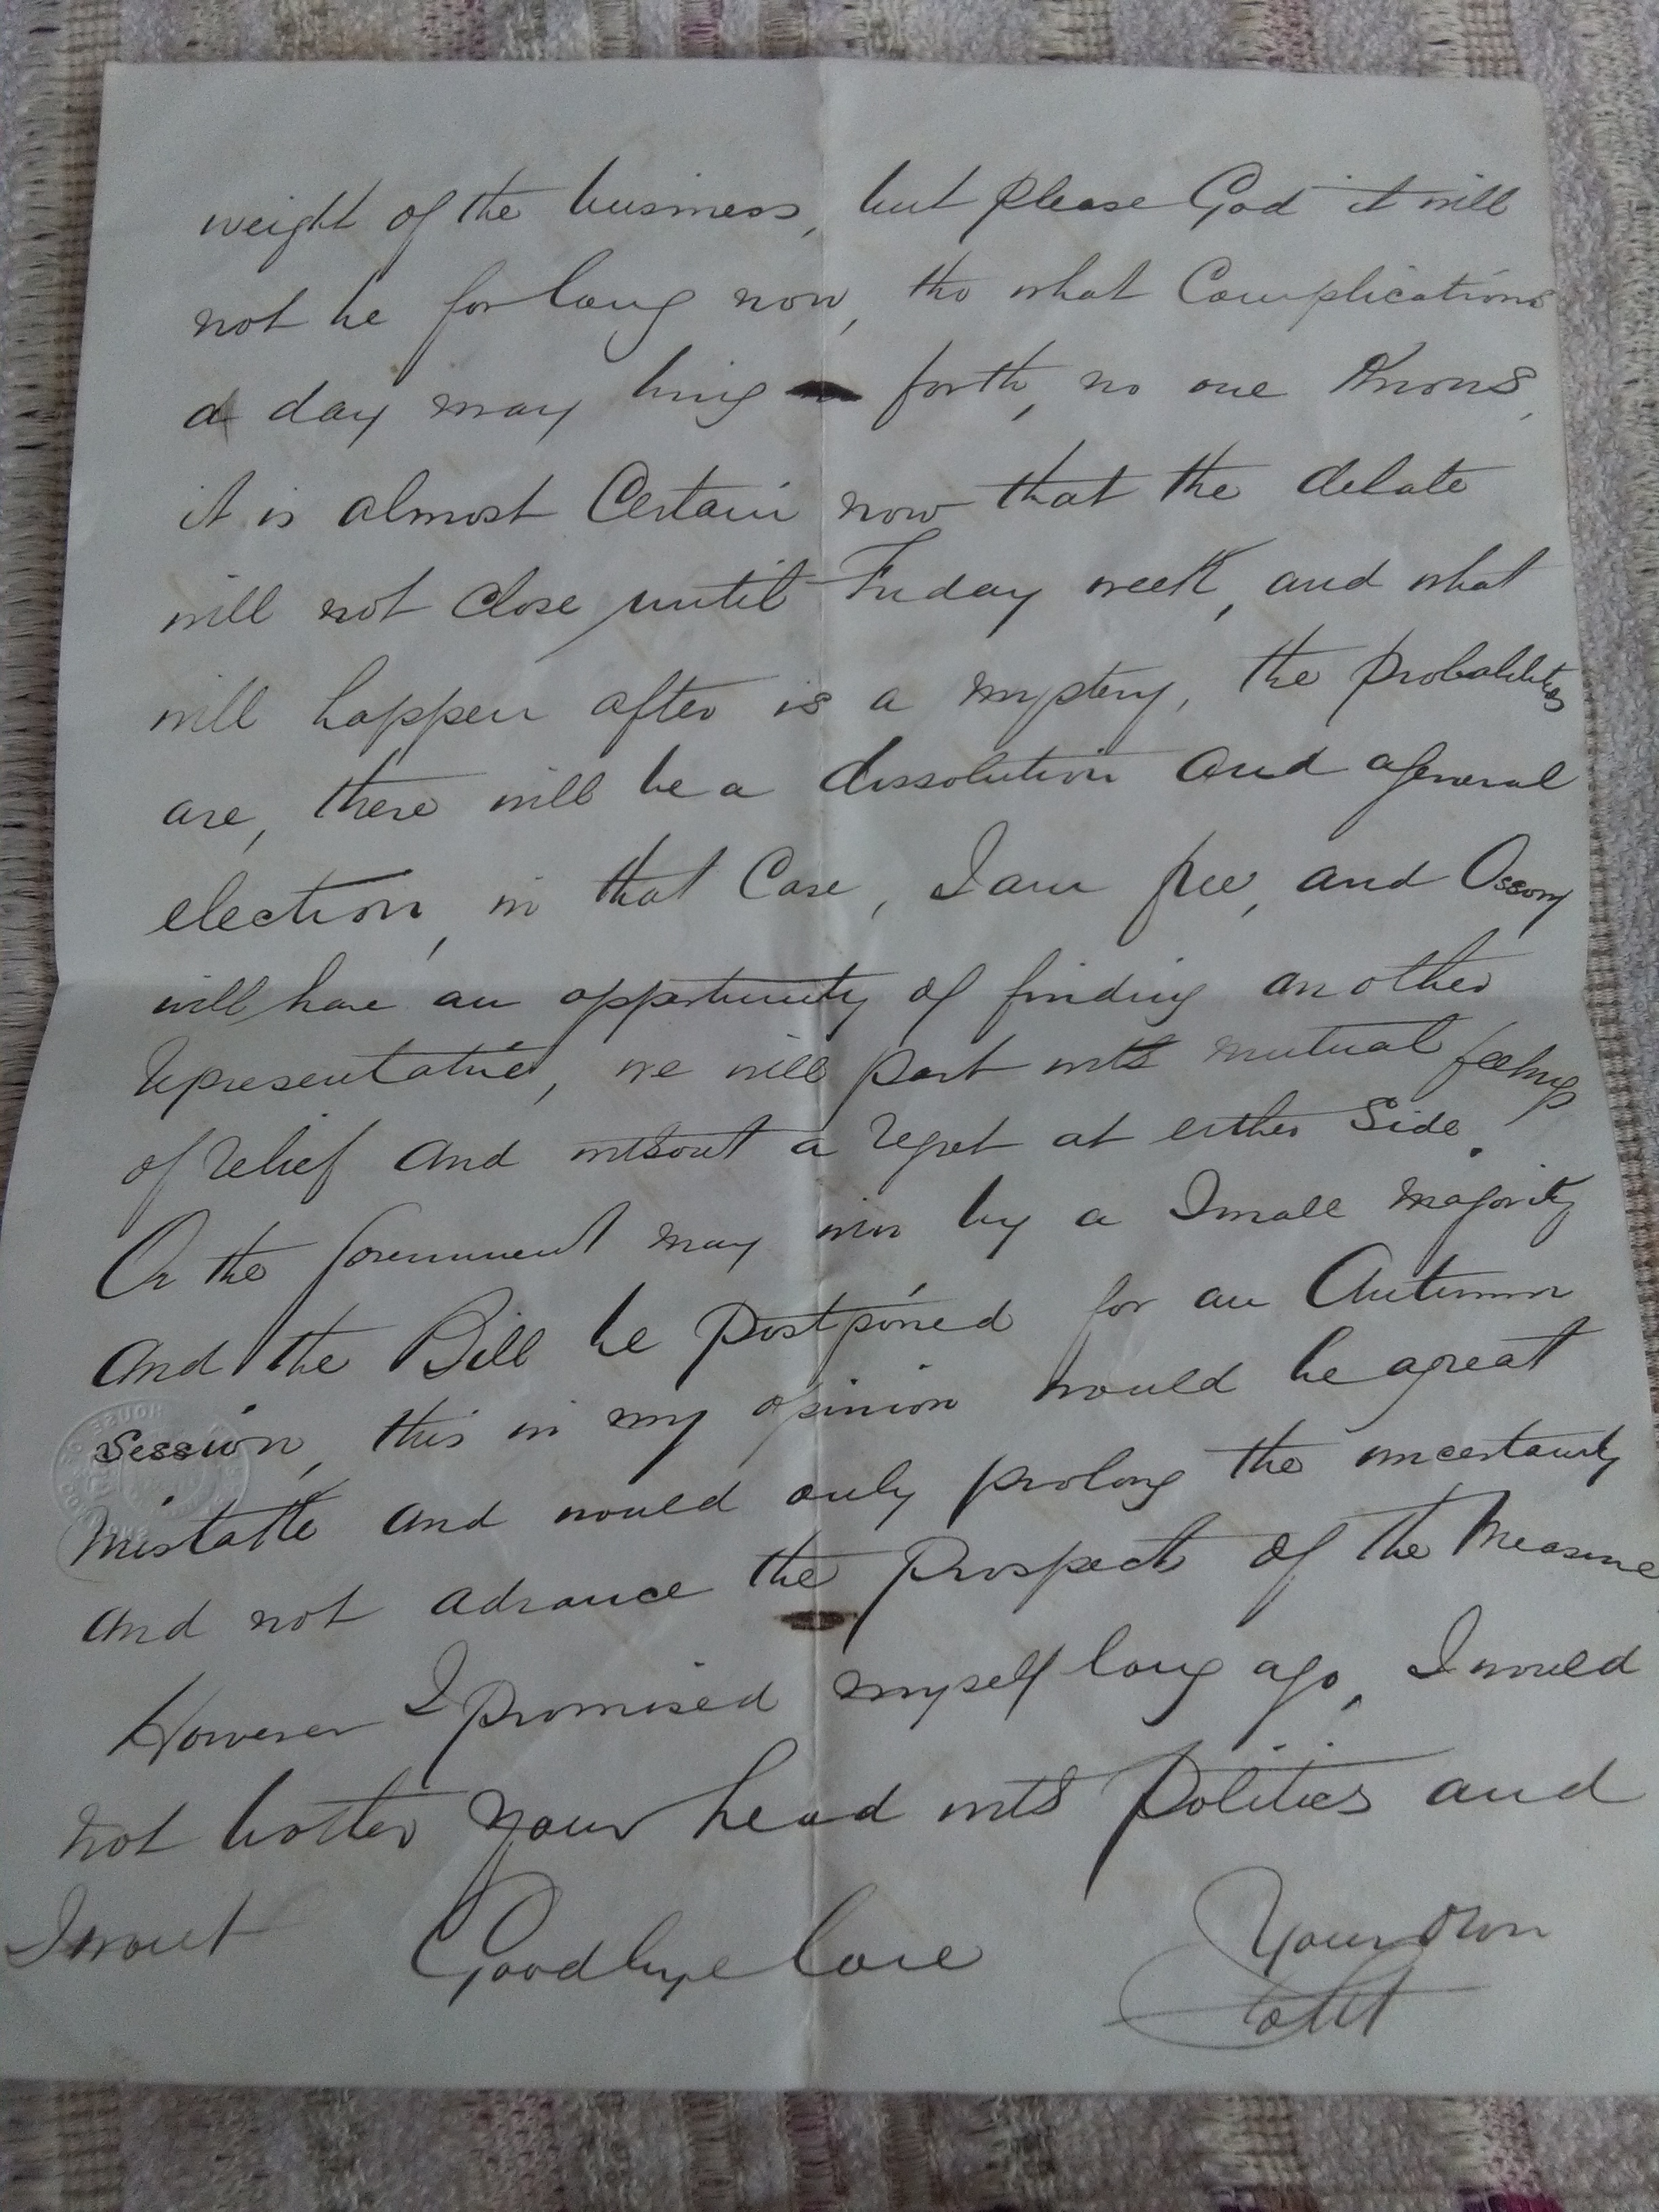 weight of the business, but please God it will
not be for long now, tho what Complications
a day may bring forth, no one Knows,
it is almost Certain now that the debate
will not close until Friday week, and what
will happen after is a mystery, the probabilities
are, there will be a dissolution and a general
election, in that Case, I am free, and Ossory
will have an opportunity of finding another
representative, we will part with mutual feelings
of relief and without a regret at either Side.
Or the Government may win by a Small Majority
and the Bill be postponed for an Autumn
Session, this in my opinion would be a great
Mistake and would only prolong the uncertainty
and not advance the Prospects of the Measure
However I promised myself long ago, I would
not bother your head with Politics and
I wont Goodbye love
Your Own
HOUSE